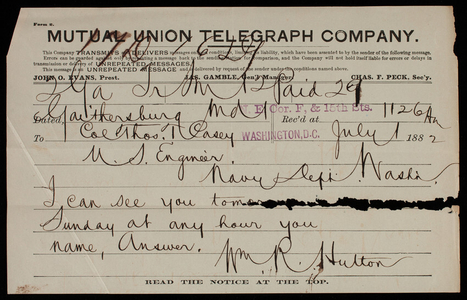 Form 2.
MUTUAL UNION TELEGRAPH COMPANY.
This Company TRANSMITS and DELIVERS messages only on conditions, limiting its liability, which have been assented to by the sender of the following message.
Errors can be guarded against only by repeating a message back to the sending station for comparison, and the Company will not hold itself liable for errors or delays in
transmission or delivery of UNREPEATED MESSAGES,
This message is an UNREPEATED MESSAGE and is delivered by request of the sender under the conditions named above.
JOHN O. EVANS, Prest. JAS. GAMBLE, Gen'l Manager. CHAS. F. PECK, Sec'y.
Paid
Dated Gaithersburg Md Rec'd at 1126 Am
Cor. F, & 15th Sts.
WASHINGTON, D.C.
To Col Thos. T. Casey July 1 1882
U. S. Engineer.
Navy Dept. Washn.
I can see you
Sunday at any hour you
name, Answer.
Wm. R. Hutton
READ THE NOTICE AT THE TOP.